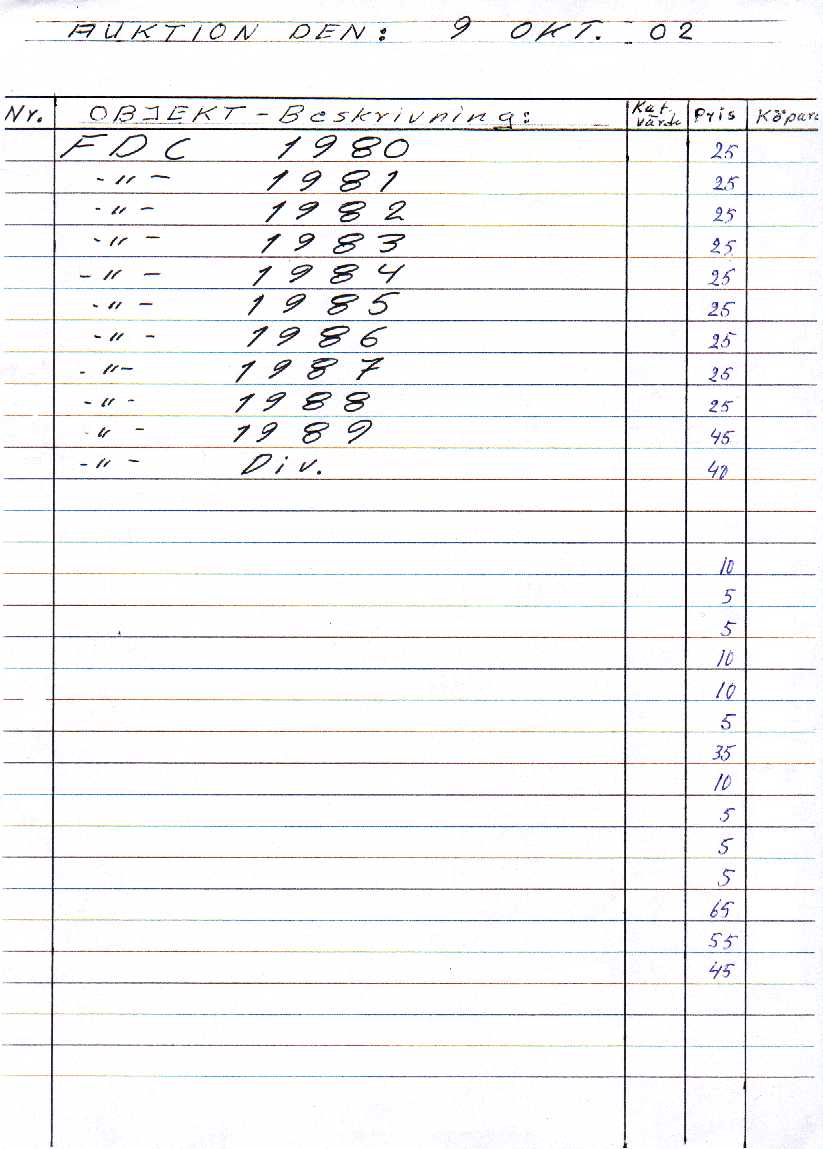 AUKTION DEN: 9 OKT. -02
Nr. OBJEKT - Beskrivning: Kat. värde Pris Köpare
FDC 1980 25
-"- 1981 25
-"- 1982 25
-"- 1983 25
-"- 1984 25
-"- 1985 25
-"- 1986 25
-"- 1987 25
-"- 1988 25
-"- 1989 45
-"- Div. 40
10
5
5
10
10
5
35
10
5
5
5
65
55
45